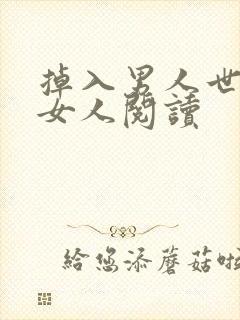 掉入男人世
女人閱讀
給您添蘑菇啦